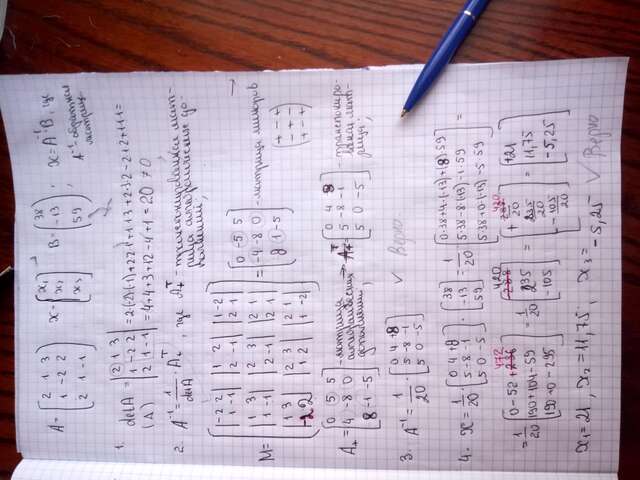 A = (2 1 3
1 -2 2
2 1 -1)
x = [x₁
x₂
x₃]
B = (38
-13
59)
, x = A⁻¹B, где
A⁻¹ обратная
матрица
1. detA = |2 1 3
1 -2 2
2 1 -1| = 2·(-2)·(-1) + 2·2·1 + 1·1·3 + 2·3·2 - 2·1·2 + 1·1·1 =
(A) = 4+4+3+12-4+1 = 20 ≠ 0
2. A⁻¹ = 1/detA · A*ᵀ, где A*ᵀ - транспонированная мат-
рица алгебраических до-
полнений;
M = [|-2 2; 1 -1| |1 2; 2 -1| |1 -2; 2 1|
|1 3; 1 -1| |2 3; 2 -1| |2 1; 2 1|
|1 3; -2 2| |2 3; 1 2| |2 1; 1 -2|] = [0 -5 5
-4 -8 0
8 1 -5] - матрица миноров
(+ - +
- + -
+ - +)
A* = [0 5 5
4 -8 0
8 -1 -5] - матрица
алгебраических
дополнений,
A*ᵀ [0 4 8
5 -8 -1
5 0 -5] - транспониро-
ванная мат-
рица;
3. A⁻¹ = 1/20 · [0 4 +8
5 -8 -1
5 0 -5] √ Верно
4. x = 1/20 · [0 4 +8
5 -8 -1
5 0 -5] · [38
-13
59] = 1/20 [0·38+4·(-13)+8·59
5·38-8·(-13)-1·59
5·38+0·(-13)-5·59] =
= 1/20 [0-52+472
190+104-59
190+0-295] = 1/20 [420
235
-105] = [420/20
235/20
-105/20] = [+21
11,75
-5,25]
x₁ = 21, x₂ = 11,75, x₃ = -5,25 √ Верно